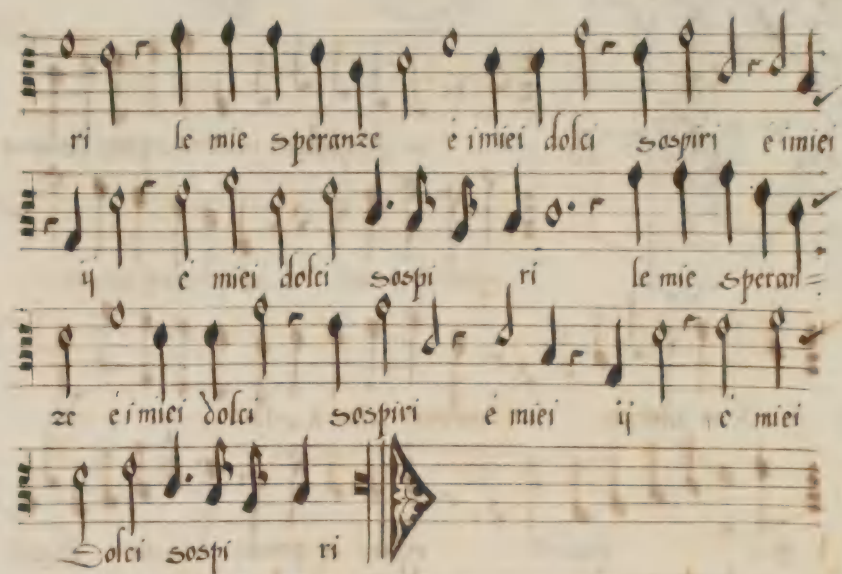 ri le mie speranze e i miei dolci sospiri e i miei
ij e miei dolci sospi ri le mie speran=
ze e i miei dolci sospiri e miei ij e miei
Dolci sospi ri